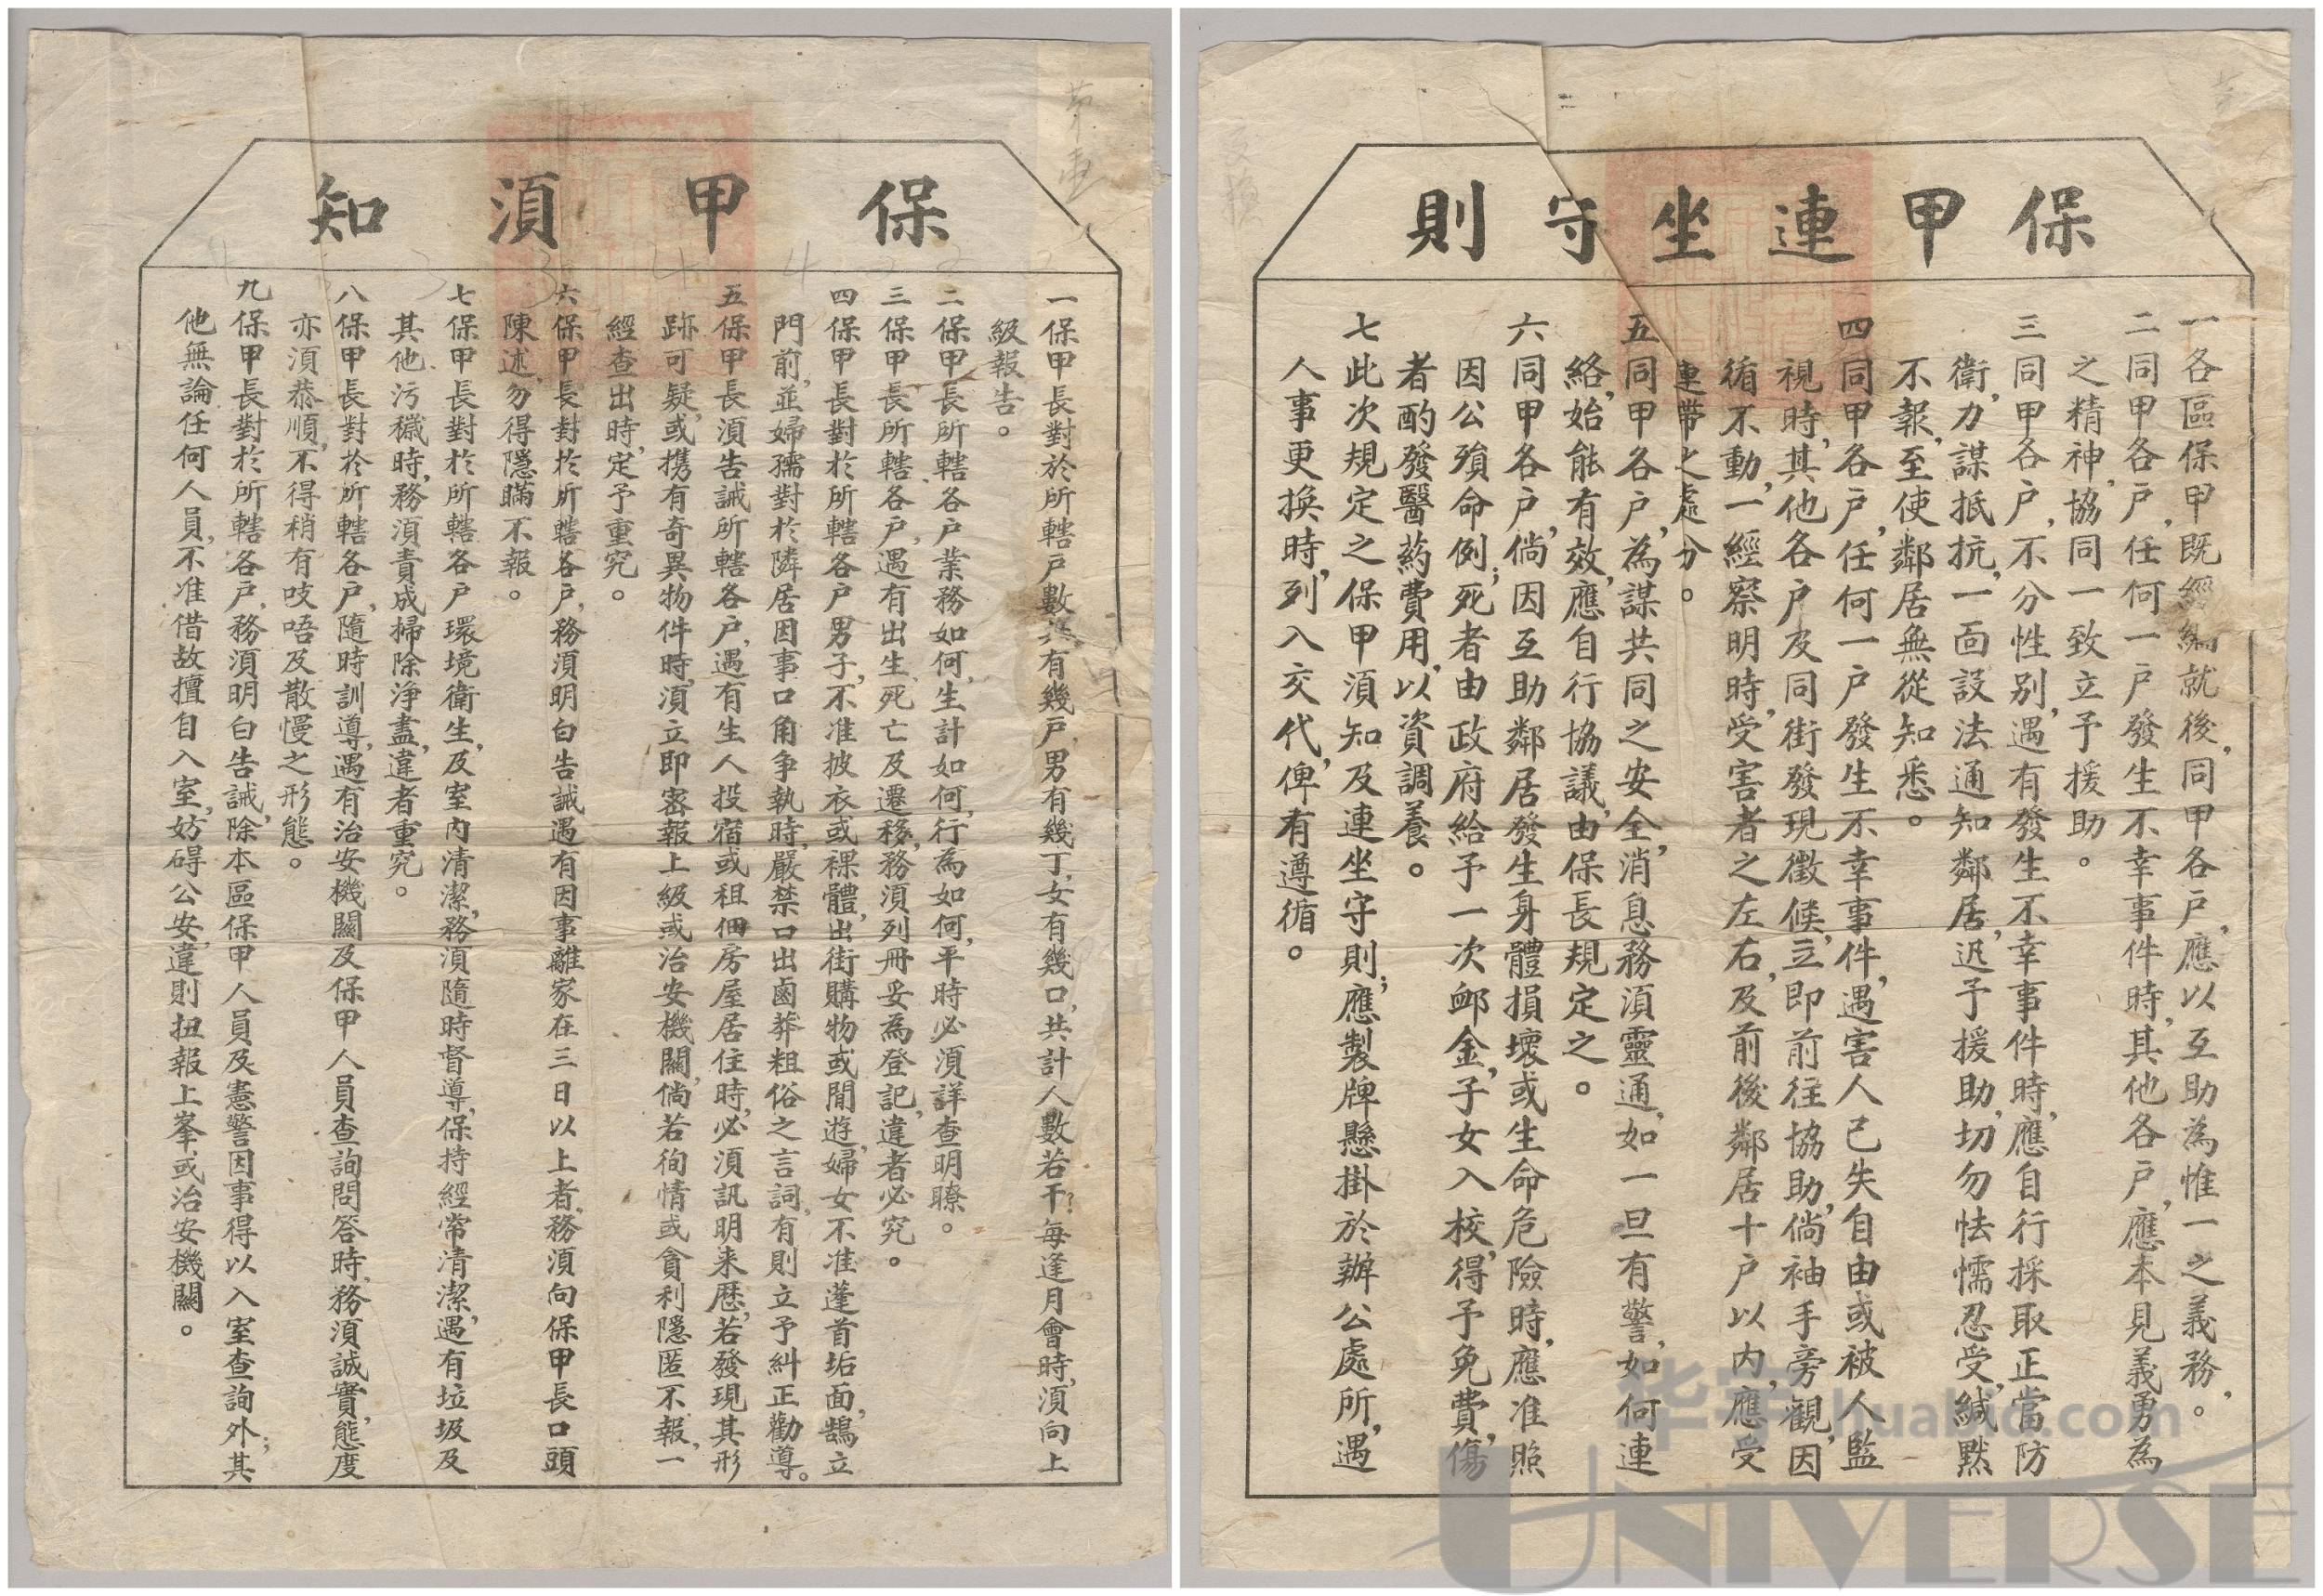 保甲須知
一保甲長對於所轄戶數共有幾戶,男有幾丁,女有幾口,共計人數若干?每逢月會時,須向上
級報告。
二保甲長所轄各户業務如何,生計如何,行為如何,平時必須詳查明瞭。
三保甲長所轄各户,遇有出生死亡及遷移,務須列冊妥為登記,違者必究。
四保甲長對於所轄各户男子,不准披衣或裸體,出街購物或閒遊,婦女不准蓬首垢面,鵠立
門前,並婦孺對於隣居因事口角争執時,嚴禁口出鹵莽粗俗之言詞,有則立予糾正勸導。
五保甲長須告誡所轄各户,遇有生人投宿或租佃房屋居住時,必須訊明来歴,若發現其形
跡可疑,或携有奇異物件時,須立即密報上級或治安機關,倘若徇情或貪利隱匿不報,一
經查出時,定予重究。
六保甲長對於所轄各户,務須明白告誡遇有因事離家在三日以上者,務須向保甲長口頭
陳述,勿得隱瞞不報。
七保甲長對於所轄各户環境衛生,及室内清潔,務須隨時督導,保持經常清潔,遇有垃圾及
其他污穢時,務須責成掃除浄盡,違者重究。
八保甲長對於所轄各户,隨時訓導,遇有治安機關及保甲人員查詢問答時,務須誠實,態度
亦須恭順,不得稍有吱唔及散慢之形態。
九保甲長對於所轄各户,務須明白告誡,除本區保甲人員及憲警因事得以入室查詢外;其
他無論任何人員,不准借故擅自入室,妨碍公安,違則扭報上峯或治安機關。
保甲連坐守則
一各區保甲既經編就後,同甲各户,應以互助為惟一之義務。
二同甲各户,任何一户發生不幸事件時,其他各户,應本見義勇為
之精神,協同一致立予援助。
三同甲各户,不分性别,遇有發生不幸事件時,應自行採取正當防
衛,力謀抵抗,一面設法通知鄰居,迟予援助,切勿怯懦忍受,緘默
不報,至使鄰居無從知悉。
四同甲各户,任何一户發生不幸事件,遇害人已失自由或被人監
視時,其他各户及同街發現徵候,立即前往協助,倘袖手旁觀,因
循不動,一經察明時,受害者之左右,及前後鄰居十户以内,應受
連帶之處分。
五同甲各户,為謀共同之安全,消息務須靈通,如一旦有警,如何連
絡,始能有效,應自行協議,由保長規定之。
六同甲各户,倘因互助鄰居發生身體損壞或生命危險時,應准照
因公殞命例;死者由政府給予一次卹金,子女入校,得予免費,傷
者酌發醫葯費用,以資調養。
七此次規定之保甲須知及連坐守則,應製牌懸掛於辦公處所,遇
人事更換時,列入交代,俾有遵循。
华宇 huabid.com
UNIVERSE